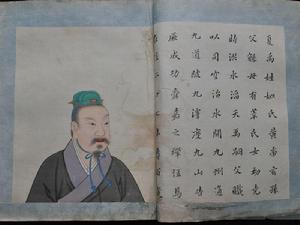 夏禹姓姒氏黃帝玄孫
父鯀母有莘氏女幼堯
時洪水滔天禹嗣父職
以司空治水開九州通
九道陂九澤度九山告
厥成功舜嘉之禪位焉